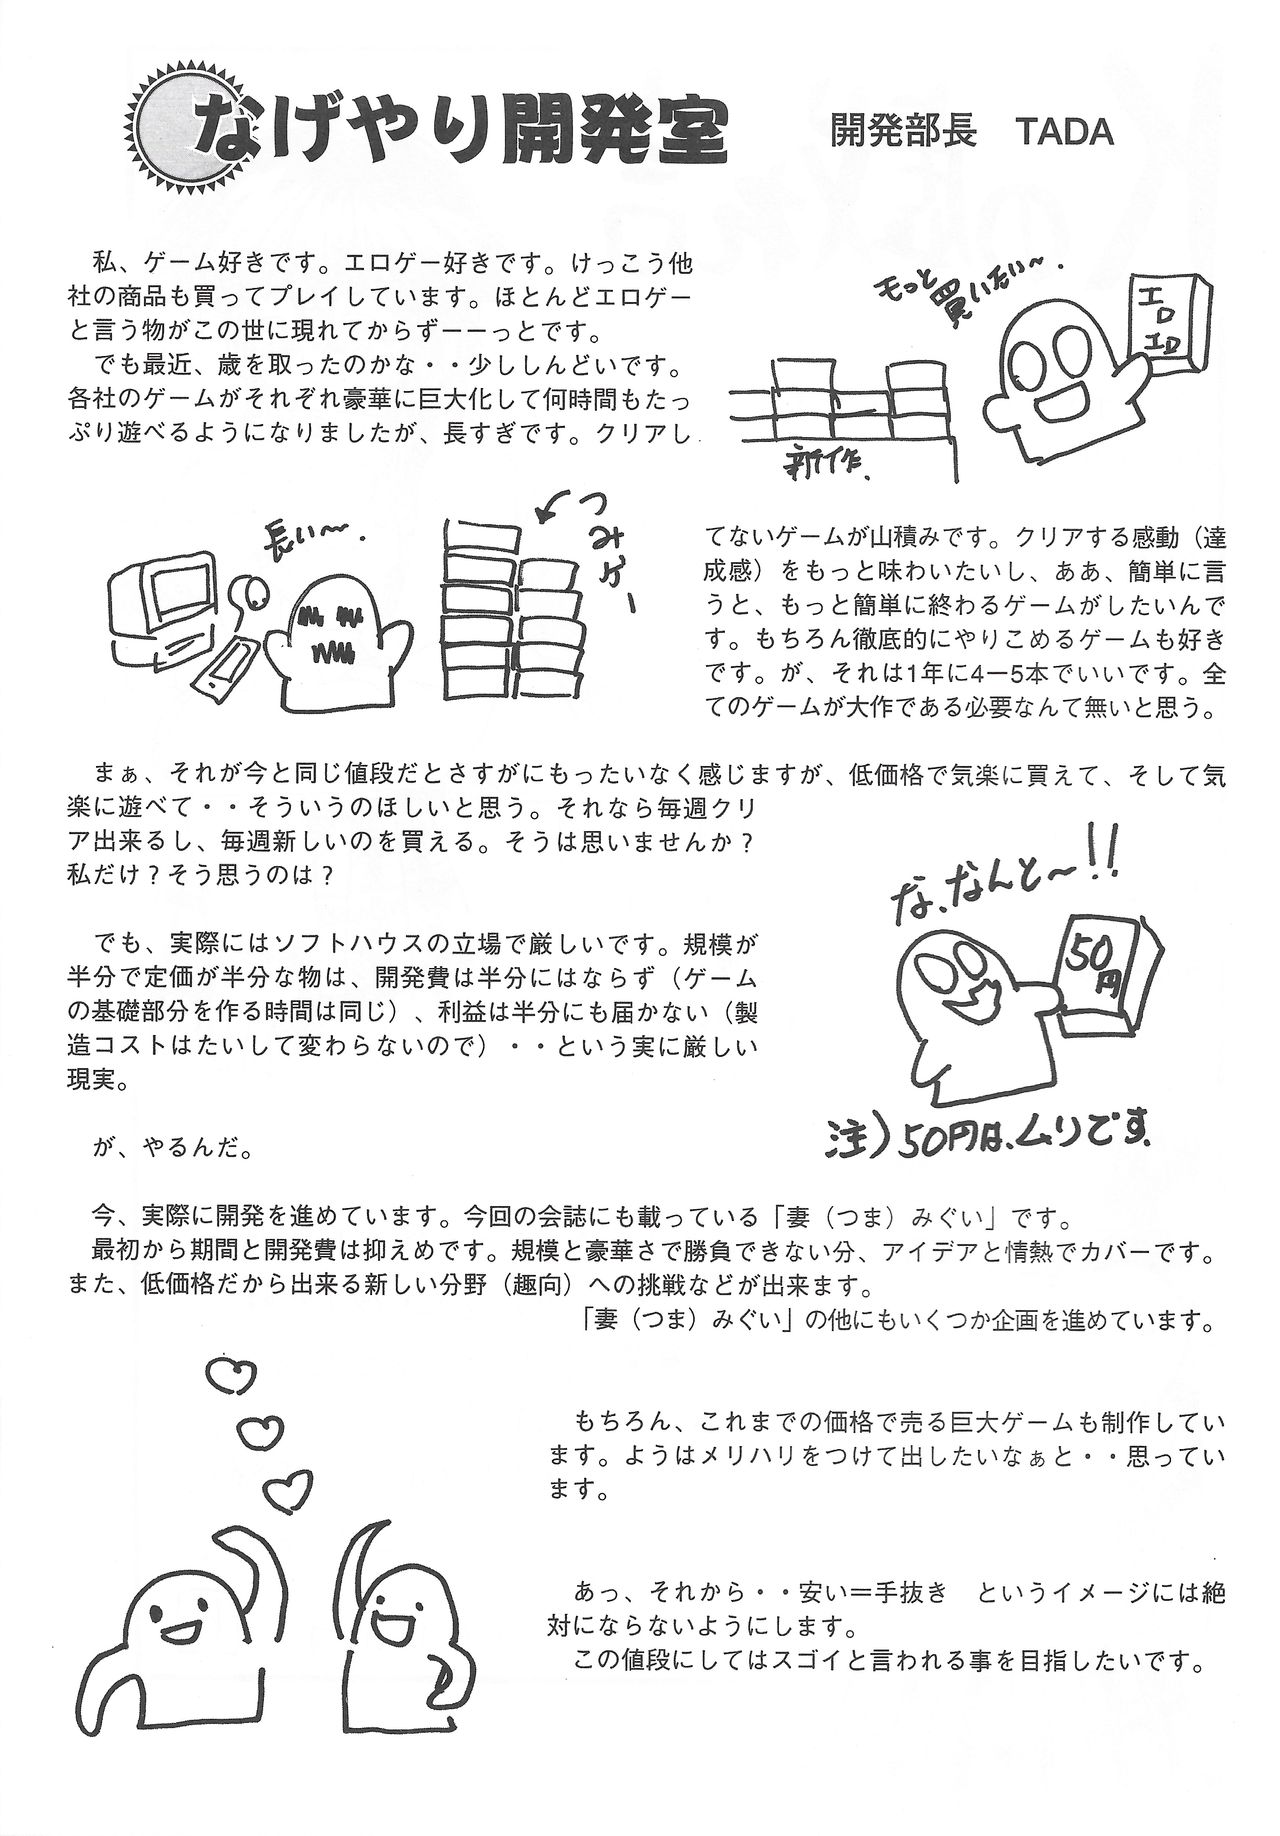 なげやり開発室
開発部長　TADA
　私、ゲーム好きです。エロゲー好きです。けっこう他
社の商品も買ってプレイしています。ほとんどエロゲー
と言う物がこの世に現れてからずーーっとです。
　でも最近、歳を取ったのかな・・少ししんどいです。
各社のゲームがそれぞれ豪華に巨大化して何時間もたっ
ぷり遊べるようになりましたが、長すぎです。クリアし
もっと買いたい〜.
エロ
エロ
新作.
長い〜.
つみゲー
てないゲームが山積みです。クリアする感動（達
成感）をもっと味わいたいし、ああ、簡単に言
うと、もっと簡単に終わるゲームがしたいんで
す。もちろん徹底的にやりこめるゲームも好き
です。が、それは1年に4ー5本でいいです。全
てのゲームが大作である必要なんて無いと思う。
　まぁ、それが今と同じ値段だとさすがにもったいなく感じますが、低価格で気楽に買えて、そして気
楽に遊べて・・そういうのほしいと思う。それなら毎週クリ
ア出来るし、毎週新しいのを買える。そうは思いませんか？
私だけ？そう思うのは？
　でも、実際にはソフトハウスの立場で厳しいです。規模が
半分で定価が半分な物は、開発費は半分にはならず（ゲーム
の基礎部分を作る時間は同じ）、利益は半分にも届かない（製
造コストはたいして変わらないので）・・という実に厳しい
現実。
な、なんと〜!!
50
円
注）50円は、ムリです.
　が、やるんだ。
　今、実際に開発を進めています。今回の会誌にも載っている「妻（つま）みぐい」です。
　最初から期間と開発費は抑えめです。規模と豪華さで勝負できない分、アイデアと情熱でカバーです。
また、低価格だから出来る新しい分野（趣向）への挑戦などが出来ます。
「妻（つま）みぐい」の他にもいくつか企画を進めています。
　もちろん、これまでの価格で売る巨大ゲームも制作してい
ます。ようはメリハリをつけて出したいなぁと・・思ってい
ます。
　あっ、それから・・安い＝手抜き　というイメージには絶
対にならないようにします。
　この値段にしてはスゴイと言われる事を目指したいです。